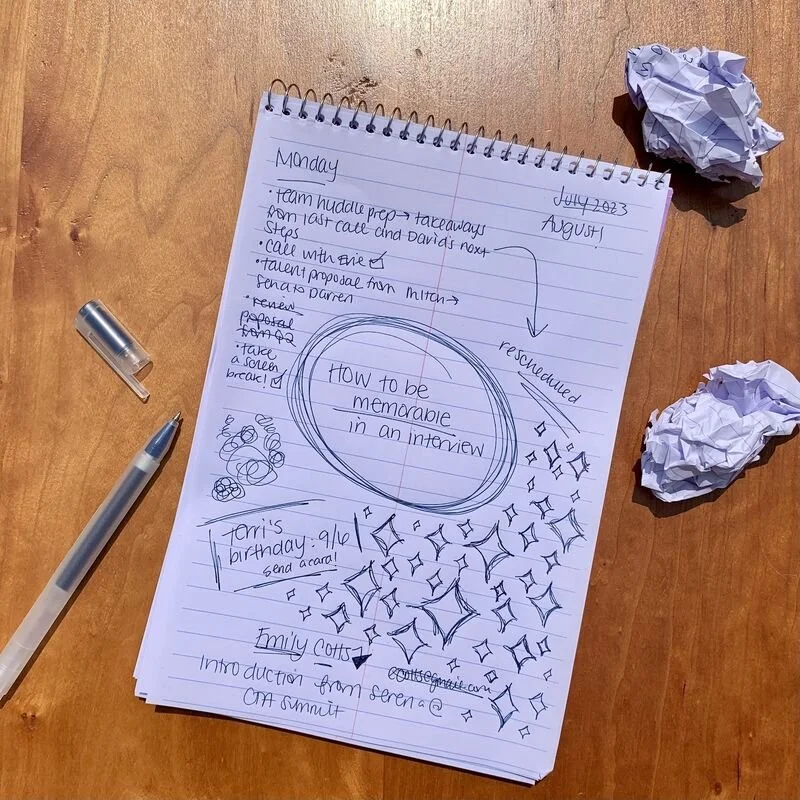 Monday
July 2023
August!
• team huddle prep → takeaways
from last call and David's next
steps
• call with Evie
• talent proposal from Mitch →
send to Darren
• review
proposal
from Q2
• take
a screen
break!
rescheduled
How to be
memorable
in an interview
Terri's
birthday: 9/6
send a card!
Emily Cotts
Introduction from Serena @
CTA Summit